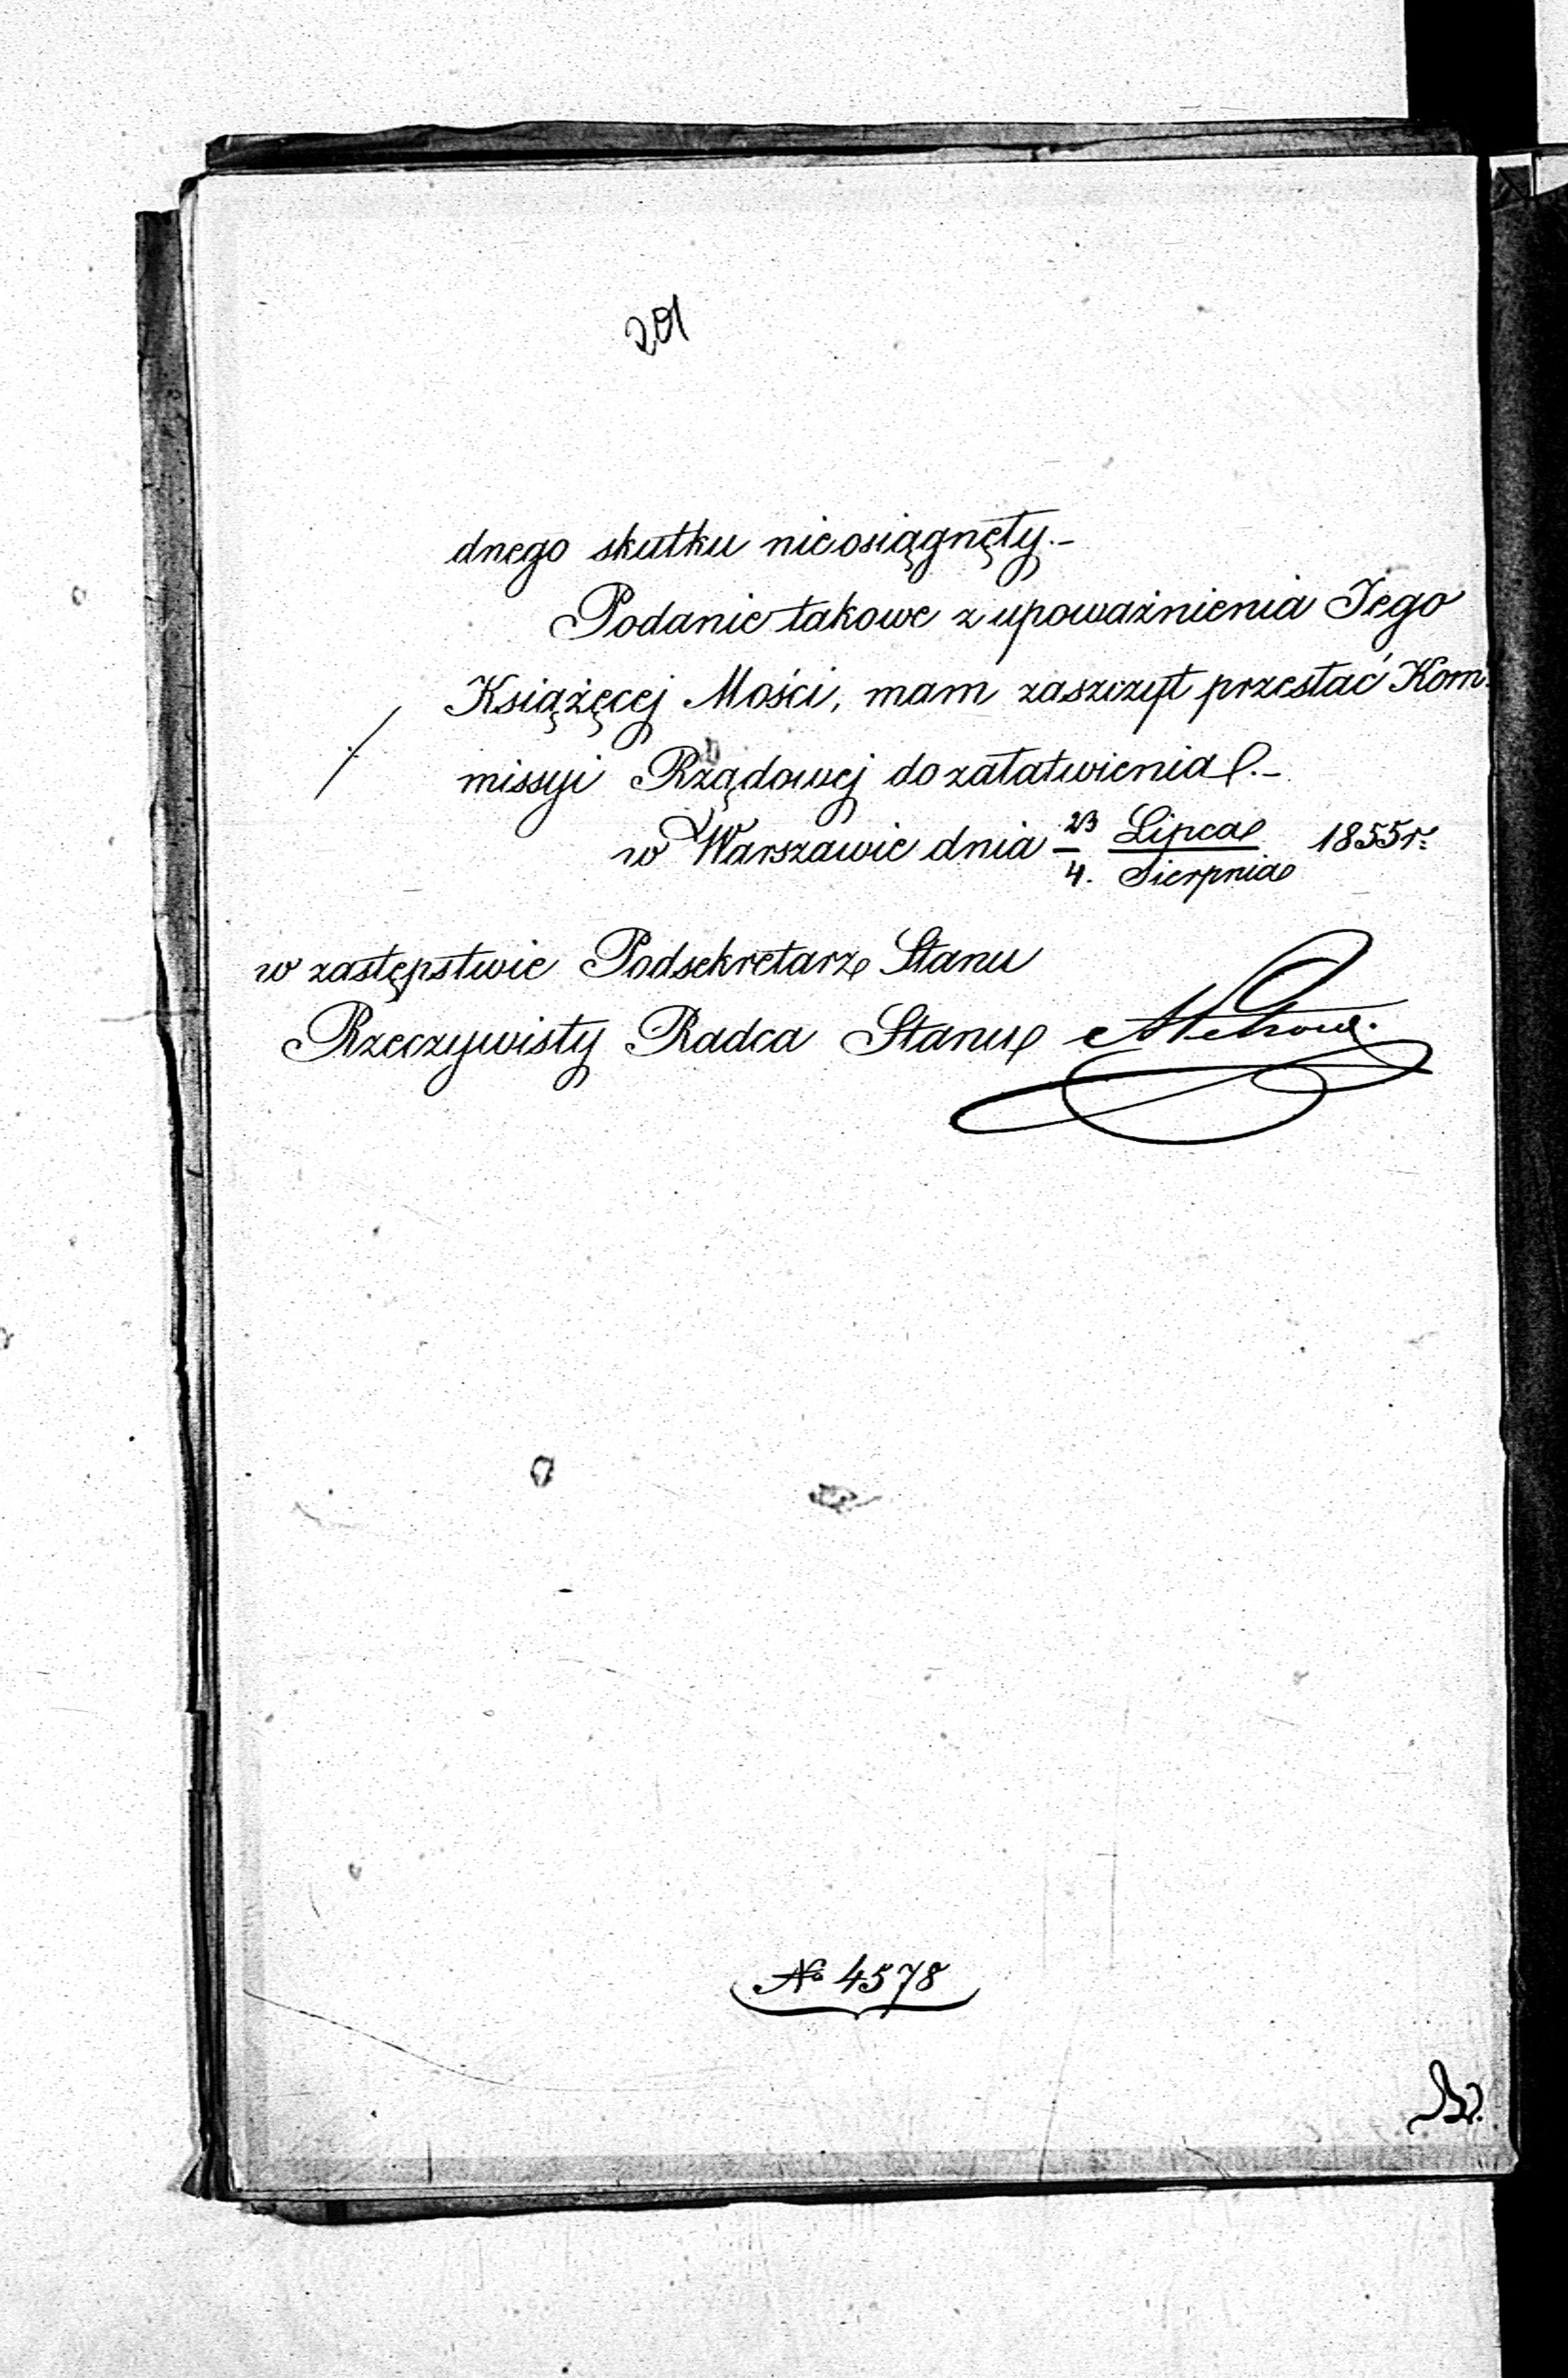 201
dnego skutku nieosiągnęły.-
Podanie takowe z upoważnienia Jego
Książęcej Mości, mam zaszczyt przesłać Kom-
missyi Rządowej do załatwienia.-
w Warszawie dnia 23/4. Lipca/Sierpnia 1855 r:
w zastępstwie Podsekretarz Stanu
Rzeczywisty Radca Stanu
№ 4578